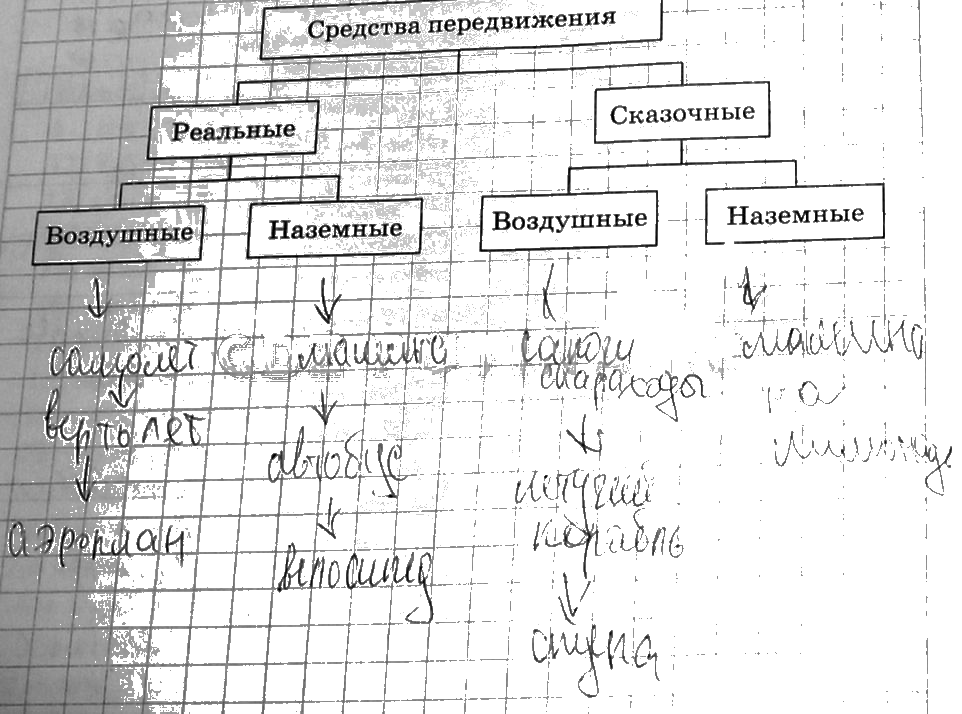 Средства передвижения
Реальные
Сказочные
Воздушные
Наземные
Воздушные
Наземные
самолет
вертолет
аэроплан
машина
автобус
велосипед
сапоги
скараходы
летучий
корабль
ступа
машина
на